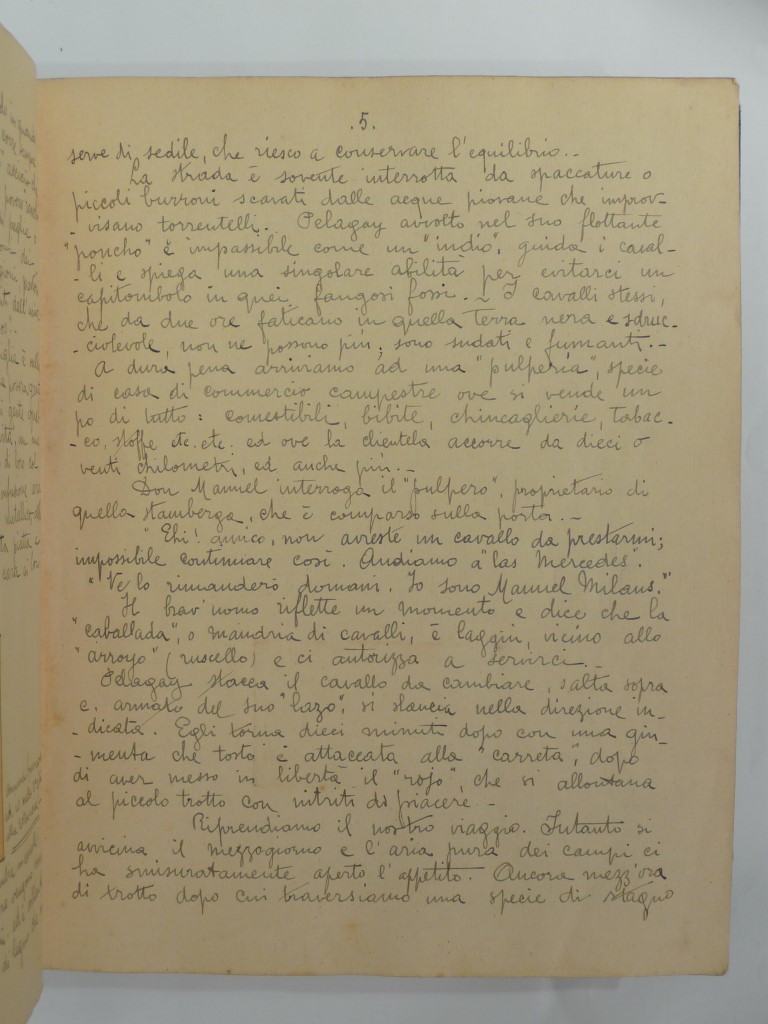 .5.
serve di sedile, che riesco a conservare l'equilibrio. -
La strada è sovente interrotta da spaccature o
piccoli burroni scavati dalle acque piovane che improv-
-visano torrentelli. Pelagay avvolto nel suo flottante
"poncho" è impassibile come un "indio", guida i caval-
-li e spiega una singolare abilità per evitarci un
capitombolo in quei fangosi fossi. - I cavalli stessi,
che da due ore faticano in quella terra nera e sdruc-
-ciolevole, non ne possono più; sono sudati e fumanti. -
A dura pena arriviamo ad una "pulperia", specie
di casa di commercio campestre ove si vende un
po di tutto: comestibili, bibite, chincaglierie, tabac-
-co, stoffe etc. etc. ed ove la clientela accorre da dieci o
venti chilometri, ed anche più. -
Don Manuel interroga il "pulpero", proprietario di
quella stamberga, che è comparso sulla porta. -
"Ehi! amico, non avreste un cavallo da prestarmi;
impossibile continuare così. Andiamo a "las Mercedes".
"Ve lo rimanderò domani. Io sono Manuel Milans."
Il brav'uomo riflette un momento e dice che la
"caballada", o mandria di cavalli, è laggiù, vicino allo
"arroyo" (ruscello) e ci autorizza a servirci. -
Pelagay stacca il cavallo da cambiare, salta sopra
e, armato del suo "lazo", si slancia nella direzione in-
-dicata. Egli torna dieci minuti dopo con una giu-
-menta che tosto è attaccata alla "carreta", dopo
di aver messo in libertà il "rojo", che si allontana
al piccolo trotto con nitriti di piacere. -
Riprendiamo il nostro viaggio. Intanto si
avvicina il mezzogiorno e l'aria pura dei campi ci
ha smisuratamente aperto l'appetito. Ancora mezz'ora
di trotto dopo cui traversiamo una specie di stagno